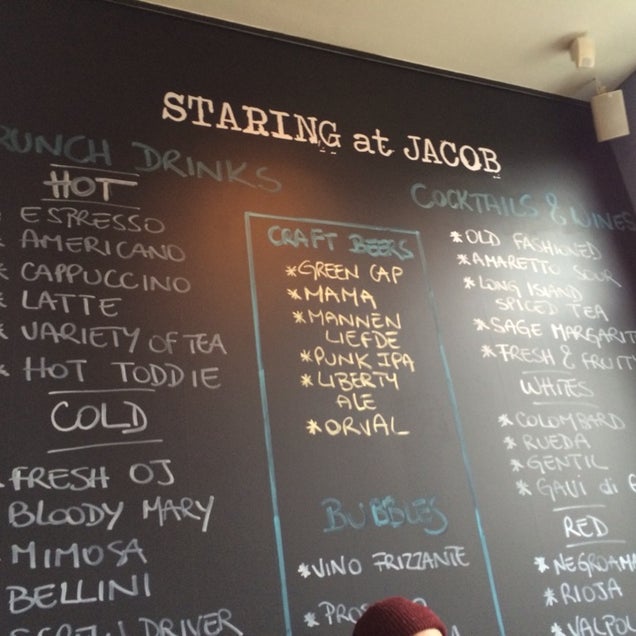 STARING at JACOB
BRUNCH DRINKS
HOT
ESPRESSO
* AMERICANO
* CAPPUCCINO
* LATTE
* VARIETY OF TEA
* HOT TODDIE
COLD
FRESH OJ
BLOODY MARY
MIMOSA
BELLINI
SCREWDRIVER
CRAFT BEERS
* GREEN CAP
* MAMA
* MANNEN
LIEFDE
* PUNK IPA
* LIBERTY
ALE
* ORVAL
BUBBLES
* VINO FRIZZANTE
*
COCKTAILS & WINES
* OLD FASHIONED
* AMARETTO SOUR
* LONG ISLAND
SPICED TEA
* SAGE MARGARIT
* FRESH & FRUITY
WHITES
* COLOMBARD
* RUEDA
* GENTIL
* GAVI di
RED
* NEGROAMA
* RIOJA
* VALPOL